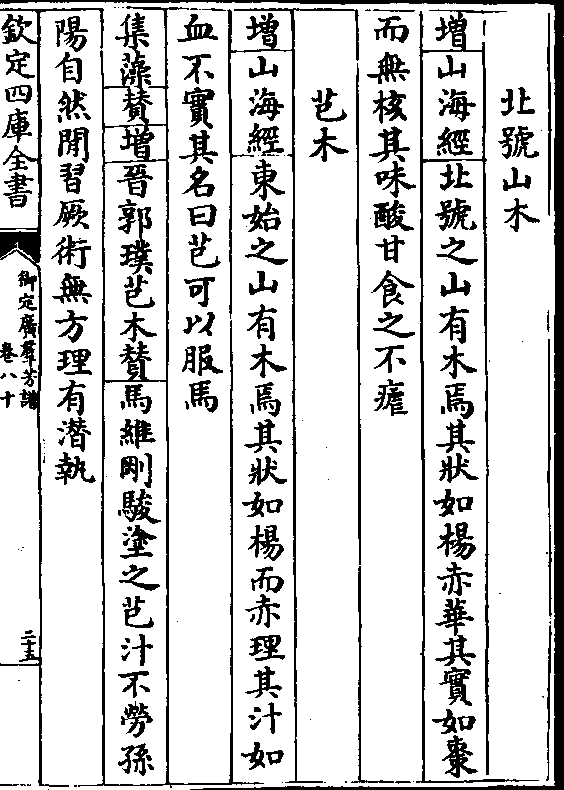 北號山木
增山海經北號之山有木焉其狀如楊赤華其實如棗
而無核其味酸甘食之不瘧
芑木
增山海經東始之山有木焉其狀如楊而赤理其汁如
血不實其名曰芑可以服馬
集藻贊增晉郭璞芑木贊馬維剛駿塗之芑汁不勞孫
陽自然閒習厥術無方理有潜執
欽定四庫全書
御定廣羣芳譜
卷八十
二十五